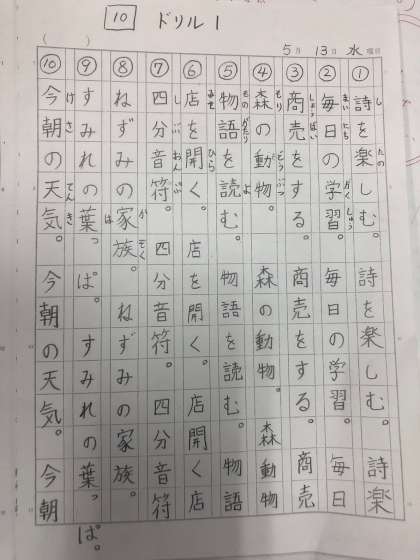 10 ドリル1
5月 13日 水曜日
① 詩を楽しむ。詩を楽しむ。詩楽
② 毎日の学習。毎日の学習。毎日
③ 商売をする。商売をする。商売
④ 森の動物。森の動物。森動物
⑤ 物語を読む。物語を読む。物語
⑥ 店を開く。店を開く。店開く店
⑦ 四分音符。四分音符。四分音符
⑧ ねずみの家族。ねずみの家族。
⑨ すみれの葉っぱ。すみれの葉っぱ。
⑩ 今朝の天気。今朝の天気。今朝